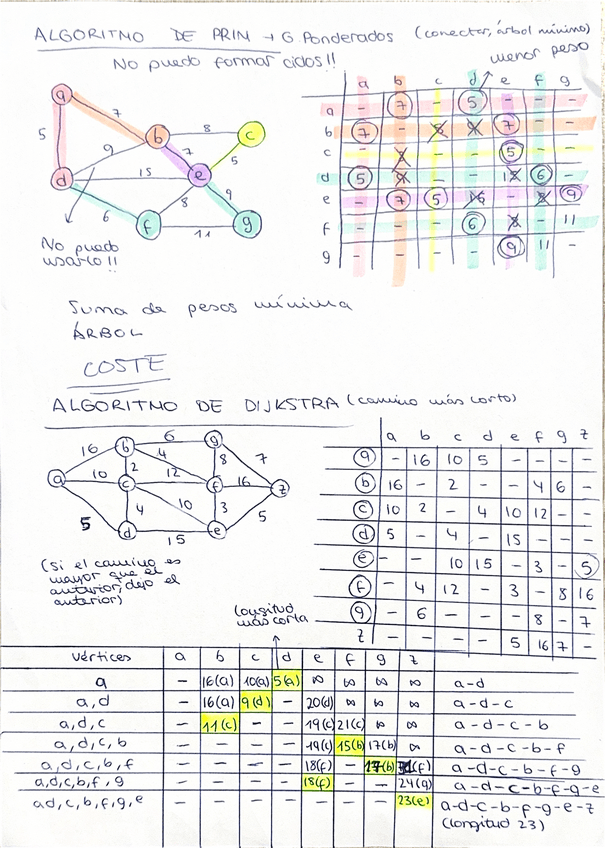 ALGORITMO DE PRIM → G Ponderados (conectar, árbol mínimo)
No puedo formar ciclos!!
menor peso
a b c d e f g
a - 7 - 5 - - -
b 7 - 8 9 7 - -
c - 8 - - 5 - -
d 5 9 - - 15 6 -
e - 7 5 15 - 8 9
f - - - 6 8 - 11
g - - - - 9 11 -
a
7
b
8
c
5
9
7
5
d
15
e
6
8
9
f
11
g
No puedo
usarlo!!
Suma de pesos mínima
ÁRBOL
COSTE
ALGORITMO DE DIJKSTRA (camino más corto)
a b c d e f g z
a - 16 10 5 - - - -
b 16 - 2 - - 4 6 -
c 10 2 - 4 10 12 - -
d 5 - 4 - 15 - - -
e - - 10 15 - 3 - 5
f - 4 12 - 3 - 8 16
g - 6 - - - 8 - 7
z - - - - 5 16 7 -
16
b
6
g
4
8
7
a
10
2
c
12
f
16
z
5
4
10
3
5
d
15
e
(si el camino es
mayor que el
anterior, dejo el
anterior)
longitud
más corta
Vértices a b c d e f g z
a - 16(a) 10(a) 5(a) ∞ ∞ ∞ ∞ a-d
a,d - 16(a) 9(d) - 20(d) ∞ ∞ ∞ a-d-c
a,d,c - 11(c) - - 19(c) 21(c) ∞ ∞ a-d-c-b
a,d,c,b - - - - 19(c) 15(b) 17(b) ∞ a-d-c-b-f
a,d,c,b,f - - - - 18(f) - 17(b) 31(f) a-d-c-b-f-g
a,d,c,b,f,g - - - - 18(f) - - 24(g) a-d-c-b-f-g-e
a,d,c,b,f,g,e - - - - - - - 23(e) a-d-c-b-f-g-e-z
(longitud 23)